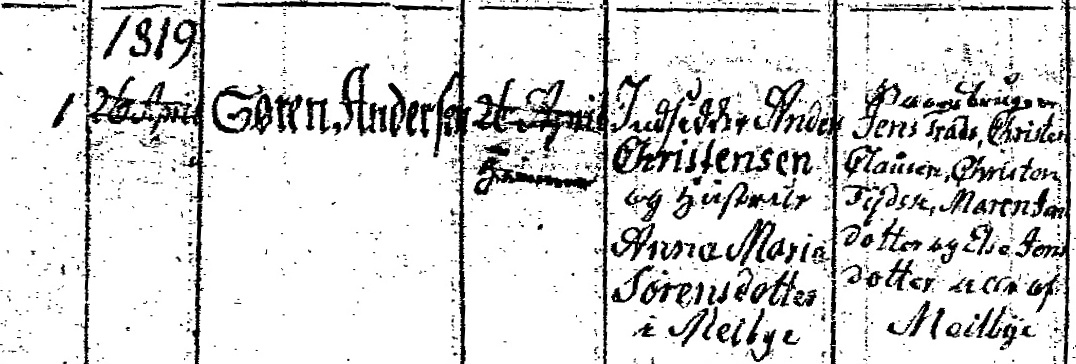 1819
1 26 April Søren, Andersen 26 April
Hiemme
Indsidder Anders
Christensen
og Hustrue
Anna Maria
Sørensdotter
i Meilbye
Gaardbruger
Jens Trads, Christen
Clausen, Christen
Tydsk, Maren Jens
dotter og Else Jens
dotter alle af
Meilbye